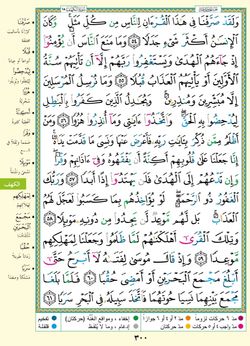 وَلَقَدْ صَرَّفْنَا فِي هَٰذَا ٱلْقُرْءَانِ لِلنَّاسِ مِن كُلِّ مَثَلٍ ۚ وَكَانَ
ٱلْإِنسَٰنُ أَكْثَرَ شَىْءٍ جَدَلًا ٥٤ وَمَا مَنَعَ ٱلنَّاسَ أَن يُؤْمِنُوٓا۟
إِذْ جَآءَهُمُ ٱلْهُدَىٰ وَيَسْتَغْفِرُوا۟ رَبَّهُمْ إِلَّآ أَن تَأْتِيَهُمْ سُنَّةُ
ٱلْأَوَّلِينَ أَوْ يَأْتِيَهُمُ ٱلْعَذَابُ قُبُلًا ٥٥ وَمَا نُرْسِلُ ٱلْمُرْسَلِينَ
إِلَّا مُبَشِّرِينَ وَمُنذِرِينَ ۚ وَيُجَٰدِلُ ٱلَّذِينَ كَفَرُوا۟ بِٱلْبَٰطِلِ
لِيُدْحِضُوا۟ بِهِ ٱلْحَقَّ ۖ وَٱتَّخَذُوٓا۟ ءَايَٰتِى وَمَآ أُنذِرُوا۟ هُزُوًا ٥٦
وَمَنْ أَظْلَمُ مِمَّن ذُكِّرَ بِـَٔايَٰتِ رَبِّهِۦ فَأَعْرَضَ عَنْهَا وَنَسِىَ مَا قَدَّمَتْ يَدَاهُ ۚ
إِنَّا جَعَلْنَا عَلَىٰ قُلُوبِهِمْ أَكِنَّةً أَن يَفْقَهُوهُ وَفِىٓ ءَاذَانِهِمْ وَقْرًا ۖ
وَإِن تَدْعُهُمْ إِلَى ٱلْهُدَىٰ فَلَن يَهْتَدُوٓا۟ إِذًا أَبَدًا ٥٧ وَرَبُّكَ
ٱلْغَفُورُ ذُو ٱلرَّحْمَةِ ۖ لَوْ يُؤَاخِذُهُم بِمَا كَسَبُوا۟ لَعَجَّلَ لَهُمُ
ٱلْعَذَابَ ۚ بَل لَّهُم مَّوْعِدٌ لَّن يَجِدُوا۟ مِن دُونِهِۦ مَوْئِلًا ٥٨
وَتِلْكَ ٱلْقُرَىٰٓ أَهْلَكْنَٰهُمْ لَمَّا ظَلَمُوا۟ وَجَعَلْنَا لِمَهْلِكِهِم
مَّوْعِدًا ٥٩ وَإِذْ قَالَ مُوسَىٰ لِفَتَىٰهُ لَآ أَبْرَحُ حَتَّىٰٓ
أَبْلُغَ مَجْمَعَ ٱلْبَحْرَيْنِ أَوْ أَمْضِىَ حُقُبًا ٦٠ فَلَمَّا بَلَغَا
مَجْمَعَ بَيْنِهِمَا نَسِيَا حُوتَهُمَا فَٱتَّخَذَ سَبِيلَهُۥ فِى ٱلْبَحْرِ سَرَبًا ٦١
الكهف
٣٠٠